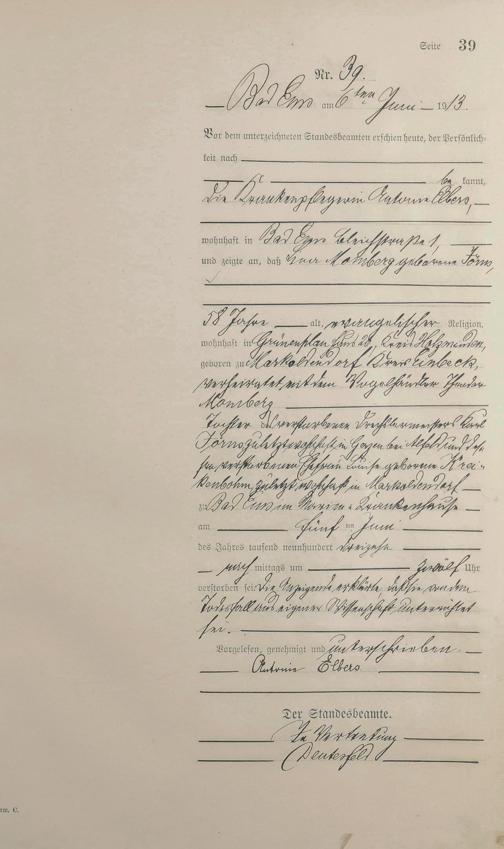 Seite 39
Nr. 39.
Bad Ems am 6ten Juni 1913.
Vor dem unterzeichneten Standesbeamten erschien heute, der Persönlich-
keit nach
be kannt,
die Krankenpflegerin Antonie Elbers,
wohnhaft in Bad Ems Bleichstraße 1,
und zeigte an, daß Momberg geborene Töns,
58 Jahre alt, evangelischer Religion,
wohnhaft in Grünenplan Kreis Holzminden,
geboren zu Markoldendorf Kreis Einbeck,
verheiratet mit dem Vogelhändler Theodor
Momberg
Tochter des verstorbenen Drechslermeisters Karl
Töns zuletzt wohnhaft in bei Alfeld und des-
sen verstorbenen Ehefrau Louise geborene
zuletzt wohnhaft in Markoldendorf
zu Bad Ems im Marien-Krankenhause
am fünf ten Juni
des Jahres tausend neunhundert dreizehn
nach mittags um zwölf Uhr
verstorben sei. Die Anzeigende erklärte, daß sie von dem
Todesfall aus eigener Wissenschaft unterrichtet
sei.
Vorgelesen, genehmigt und unterschrieben
Antonie Elbers
Der Standesbeamte.
In Vertretung
rm. C.